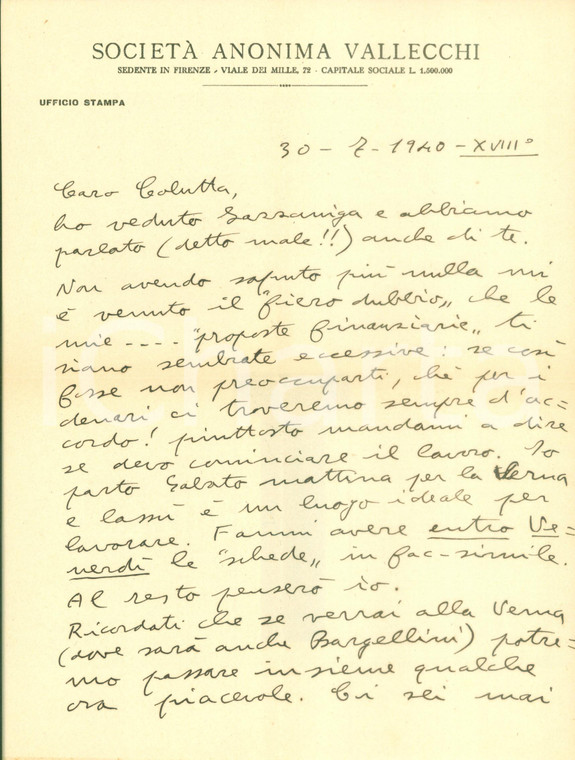 SOCIETÀ ANONIMA VALLECCHI
SEDENTE IN FIRENZE - VIALE DEI MILLE, 72 - CAPITALE SOCIALE L. 1.500.000
UFFICIO STAMPA
30 - 7 - 1940 - XVIII°
Caro Colutta,
ho veduto Gazzaniga e abbiamo
parlato (detto male!!) anche di te.
Non avendo saputo più nulla mi
è venuto il "fiero dubbio„ che le
mie .... "proposte finanziarie„ ti
siano sembrate eccessive: se così
fosse non preoccuparti, chè per i
denari ci troveremo sempre d'ac=
cordo! piuttosto mandami a dire
se devo cominciare il lavoro. Io
parto Sabato mattina per la Verna
e lassù è un luogo ideale per
lavorare. Fammi avere entro Ve=
nerdì le "schede„ in fac-simile.
Al resto penserò io.
Ricordati che se verrai alla Verna
(dove sarà anche Bargellini) potre=
mo passare insieme qualche
ora piacevole. Ci sei mai